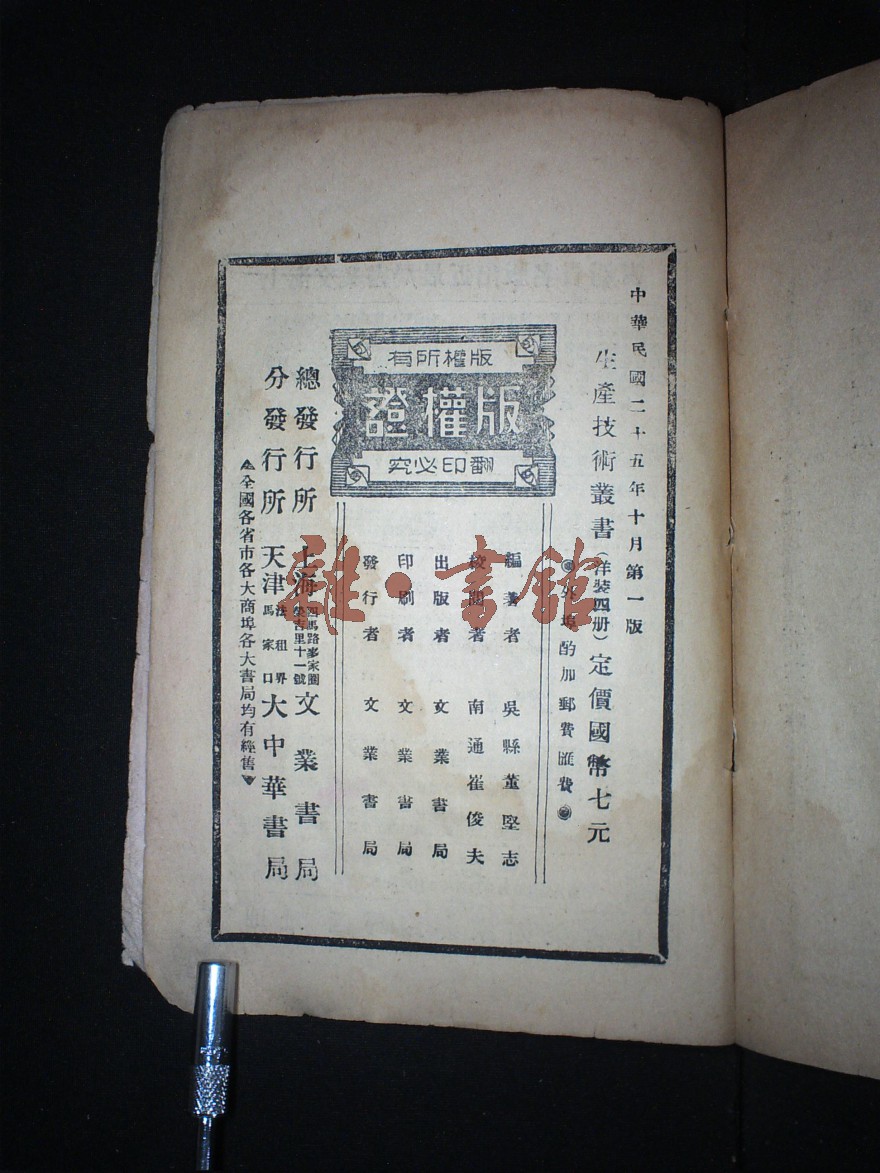 中華民國二十五年十月第一版
生產技術叢書（洋裝四册）定價國幣七元
外埠酌加郵費匯費
版權所有
版權證
翻印必究
編著者 吳縣董堅志
校閱者 南通崔俊夫
出版者 文業書局
印刷者 文業書局
發行者 文業書局
總發行所 上海四馬路多家圈榮吉里十一號文業書局
分發行所 天津法租界馬家口大中華書局
全國各省市各大商埠各大書局均有經售
雜·書館